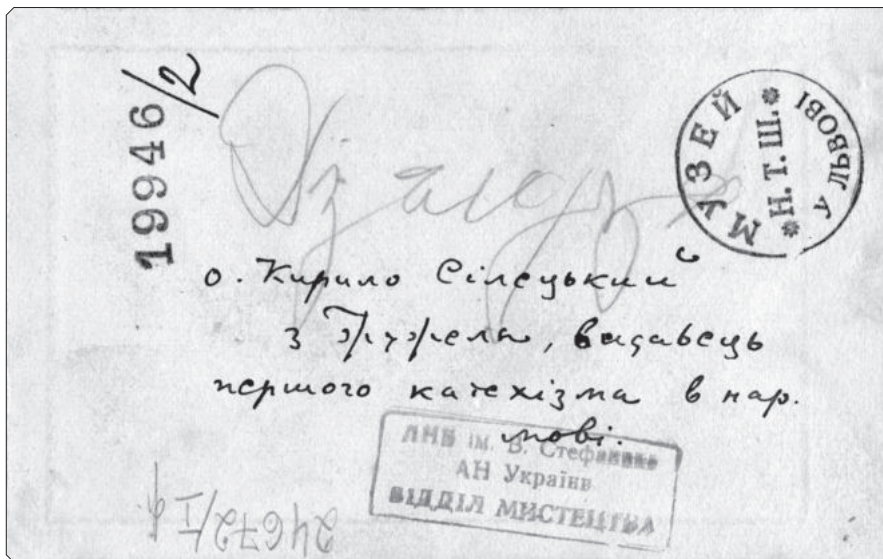 19946/2
МУЗЕЙ
* Н. Т. Ш. *
У ЛЬВОВІ
о. Кирило Сілецький
з Жужеля, видавець
першого катехізма в нар.
мові.
ЛНБ ім. В. Стефаника
АН України
ВІДДІЛ МИСТЕЦТВА
24672/I